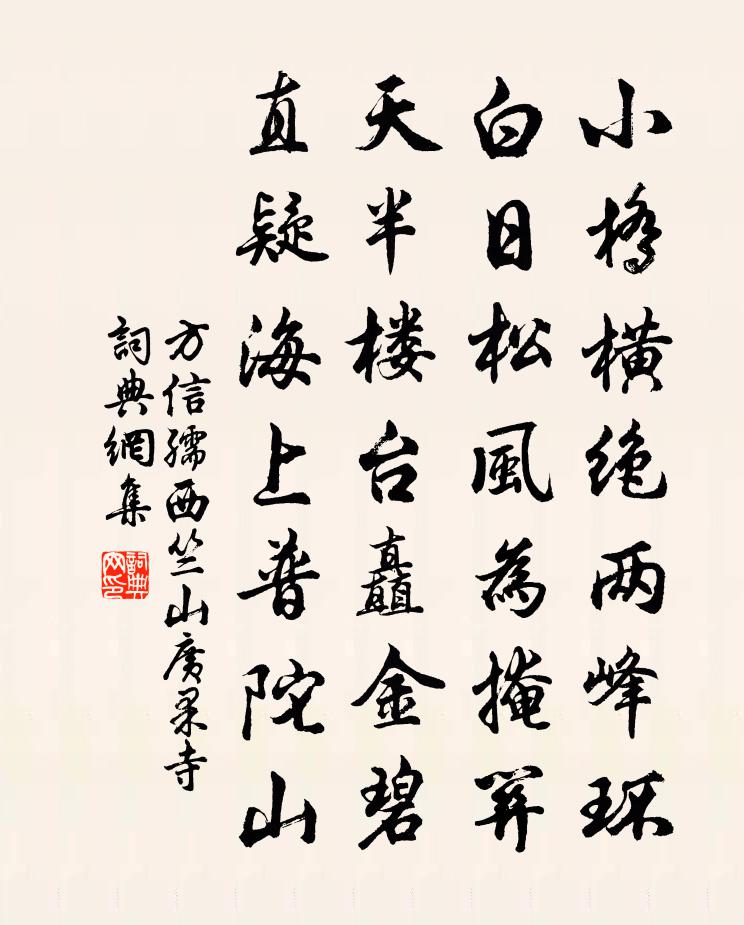 小橋橫绝两峰环
白日松風為掩関
天半楼台矗金碧
直疑海上普陀山
方信孺西竺山廣果寺
詞典網集
詞典网印